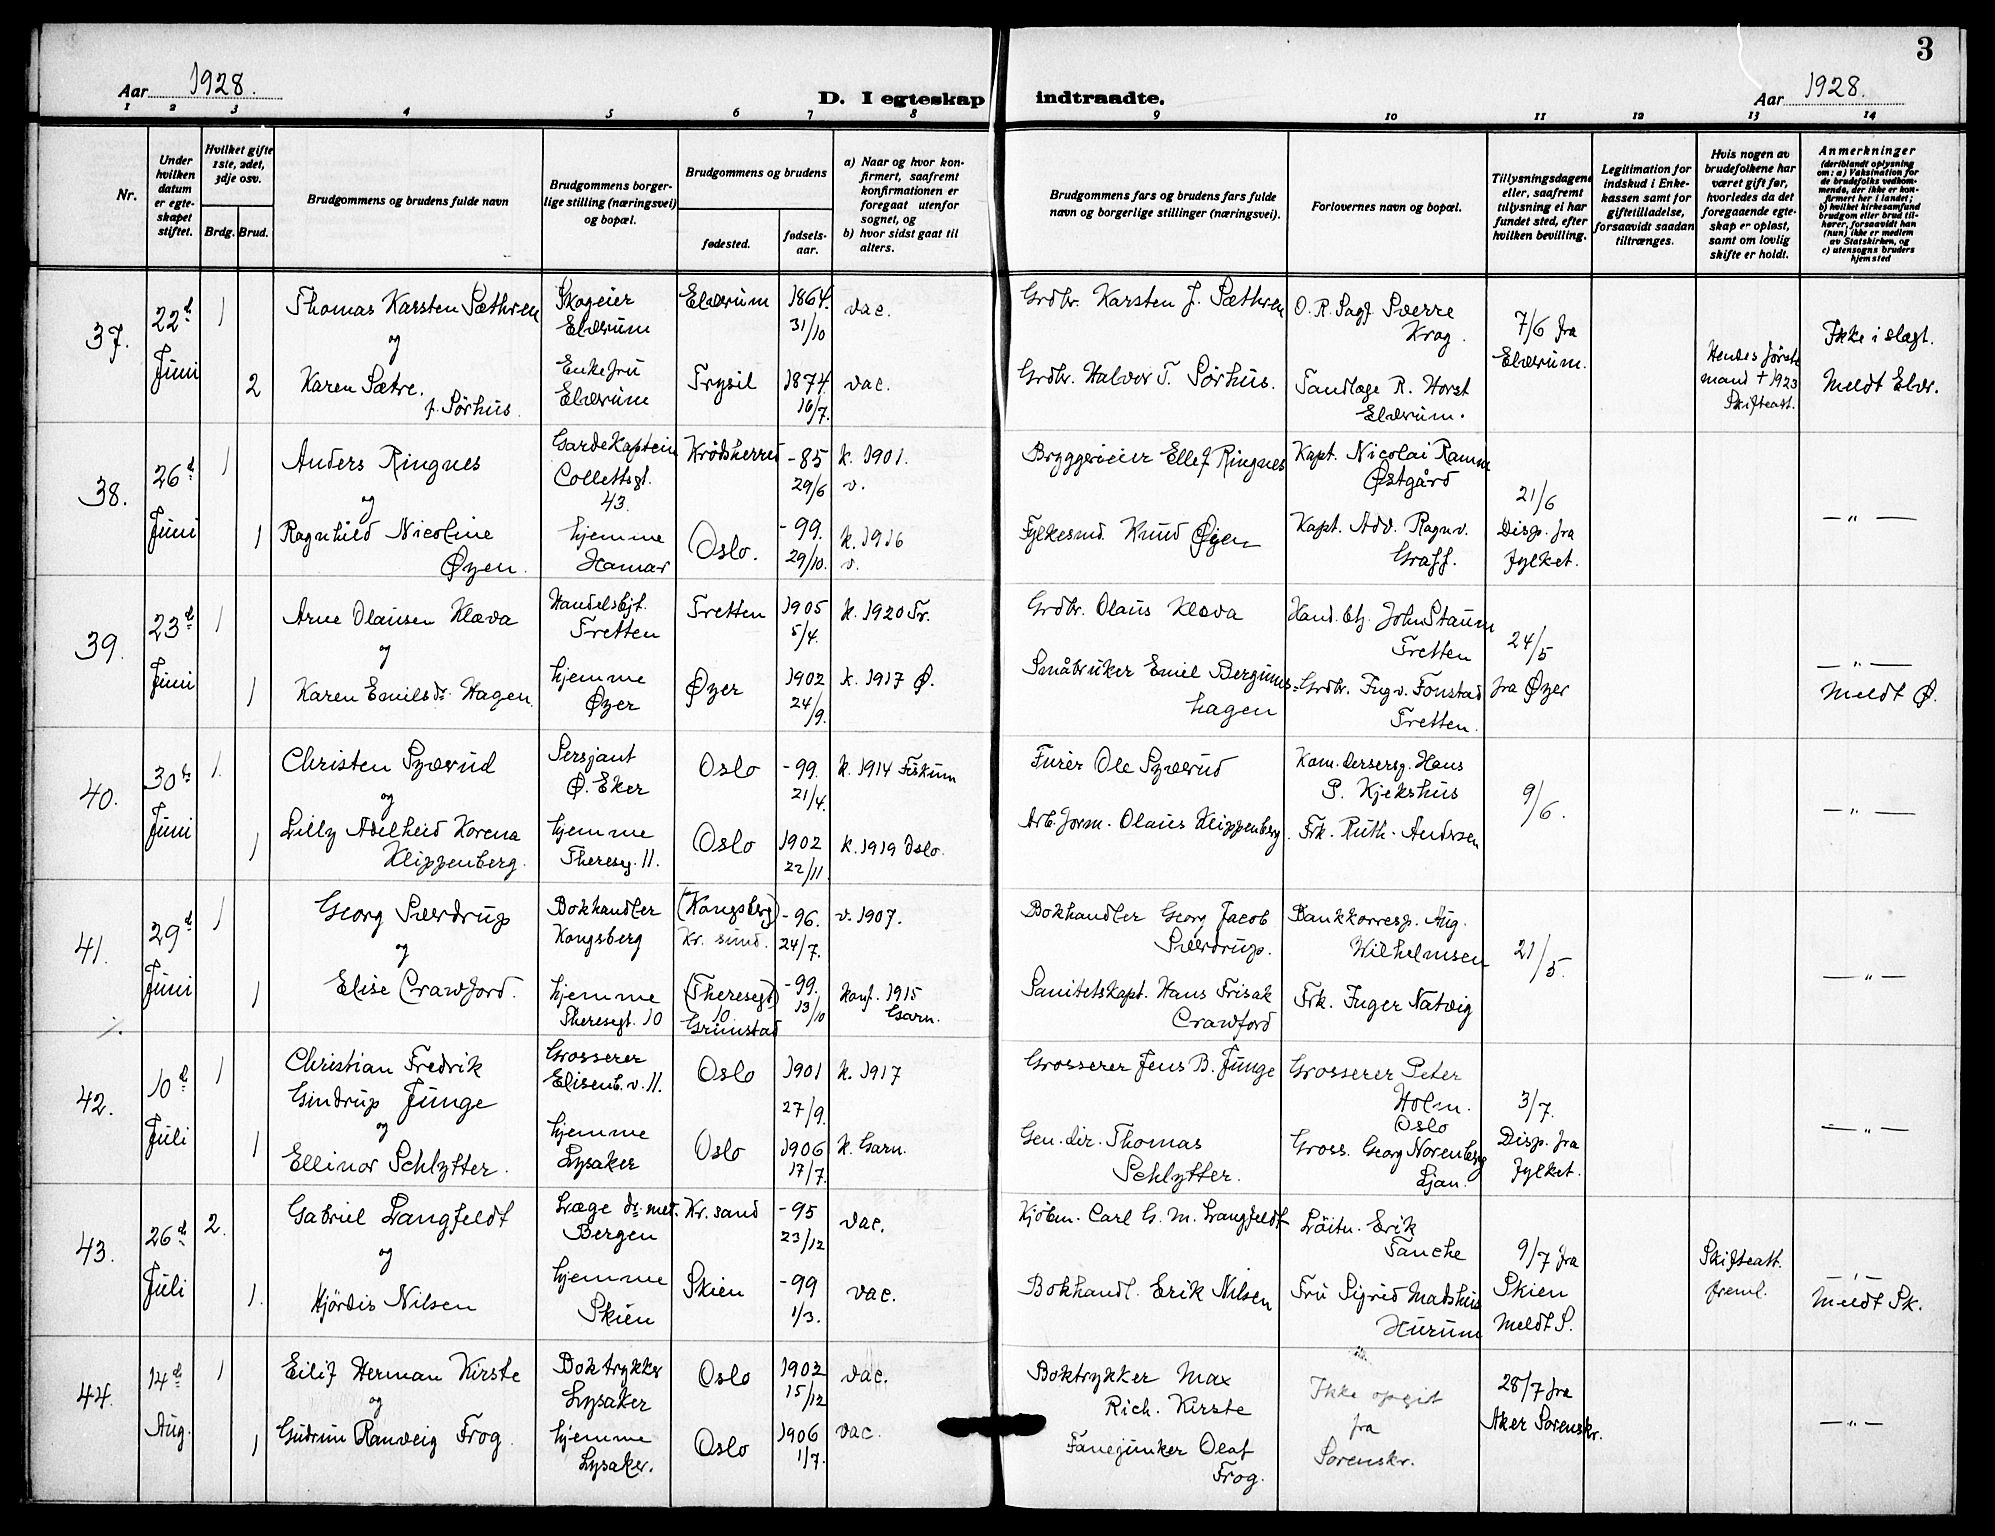 3
Aar 1928.
D. I egteskap indtraadte.
Aar 1928.
1 2 3 4 5 6 7 8 9 10 11 12 13 14
Nr.
Under hvilken datum er egteskapet stiftet.
Hvilket gifte 1ste, 2det, 3dje osv.
Brdg. Brud.
Brudgommens og brudens fulde navn
Brudgommens borgerlige stilling (næringsvei) og bopæl.
Brudgommens og brudens
fødested.
fødselsaar.
a) Naar og hvor konfirmert, saafremt konfirmationen er foregaat utenfor sognet, og
b) hvor sidst gaat til alters.
Brudgommens fars og brudens fars fulde navn og borgerlige stillinger (næringsvei).
Forlovernes navn og bopæl.
Tillysningsdagene eller, saafremt tillysning ei har fundet sted, efter hvilken bevilling.
Legitimation for indskud i Enkekassen samt for giftetilladelse, forsaavidt saadan tiltrænges.
Hvis nogen av brudefolkene har været gift før, hvorledes da det foregaaende egteskap er opløst, samt om lovlig skifte er holdt.
Anmerkninger (deriblandt oplysning om: a) Vaksination for de brudefolks vedkommende, der ikke er konfirmert her i landet; b) hvilket kirkesamfund brudgom eller brud tilhører, forsaavidt han (hun) ikke er medlem av Statskirken, og c) utensogns bruders hjemsted
37. 22d Juni 1 Thomas Karsten Sæthren Skogeier Elverum Elverum 1864. 31/10 vac. Grdbr. Karsten J. Sæthren O.R. Sagf Sverre Krag. 7/6 fra Elverum. Ikke i slegt.
og
2 Karen Sætre. f. Sørhus. Enkefru Elverum Trysil 1874 16/7. vac. Grdbr. Halvor T. Sørhus. Tandlæge R. Horst Elverum. Hendes første mand † 1923 Skifteatt. Meldt Elvr.
38. 26d Juni 1 Anders Ringnes Gardekaptein Collettsgt. 43. Krødsherred -85 29/6 k. 1901. v. Bryggerieier Ellef Ringnes Kapt. Nicolai Ramm Østgård 21/6
og
1 Ragnhild Nicoline Øyen. hjemme Hamar Oslo. -99. 29/10. k. 1916 v. Fylkesmd. Knud Øyen Kapt. Adv. Ragnv. Graff. Disp. fra fylket. — „ —
39. 23d Juni 1 Arne Olausen Kleva Handelsbjt. Tretten Tretten 1905 5/4. k. 1920 Tr. Grdbr. Olaus Kleva Hand. btj. John Staum Tretten 24/5
og
1 Karen Emilsdr. Hagen. hjemme Øyer Øyer 1902 24/9. k. 1917 Ø. Småbruker Emil Bergumshagen Grdbr. Ingv. Fonstad Tretten. fra Øyer — „ — Meldt Ø.
40. 30te Juni 1. Christen Syverud Sersjant Ø. Eker Oslo -99. 21/4. k. 1914 Fiskum Furér Ole Syverud Kom. dersersj. Hans P. Kjekshus 9/6.
og
1 Lilly Adelheid Korena Klippenberg. hjemme Theresg. 11. Oslo 1902 22/11 k. 1919 Oslo. Arb. form. Olaus Klippenberg Frk. Ruth Andrsen — „ —
41. 29d Juni 1 Georg Sverdrup Bokhandler Kongsberg (Kongsberg) Kr. sund. -96. 24/7. v. 1907. Bokhandler Georg Jacob Sverdrup. Bankkorresp. Aug. Wilhelmsen 21/5.
og
1 Elise Crawford. hjemme Theresegt. 10 (Theresegt) 10 Grimstad -99. 13/10 Konf. 1915 Garn. Sanitetskapt. Hans Frisak Crawford Frk. Inger Natvig — „ —
42. 10d Juli 1 Christian Fredrik Gindrup Junge Grosserer Elisenb. v. 11. Oslo 1901 27/9. k. 1917 Grosserer Jens B. Junge Grosserer Peter Holm. Oslo 3/7.
og
1 Ellinor Schlytter. hjemme Lysaker Oslo 1906 17/7. k. Garn. Gen. dir. Thomas Schlytter. Gross. Georg Norenberg Ljan. Disp. fra fylket. — „ —
43. 26d Juli 2. Gabriel Langfeldt Læge dr. med. Bergen Kr. sand -95 23/12 vac. Kjøbm. Carl G. M. Langfeldt Löitn. Erik Tanche 9/7 fra
og
1. Hjördis Nilsen hjemme Skien Skien -99 1/3. vac. Bokhandl. Erik Nilsen Fru Sigrid Madshus Hurum Skien meldt S. Skifteatt. freml. — „ — Meldt Sk.
44. 14d Aug. 1 Eilif Herman Kirste Boktrykker Lysaker Oslo 1902 15/12 vac. Boktrykker Max Rich. Kirste Ikke opgit fra Sorenskr. 28/7 fra Aker Sorenskr.
og
1 Gudrun Ranveig Frog. hjemme Lysaker. Oslo 1906 1/7. vac. Fanejunker Olaf Frog. — „ —